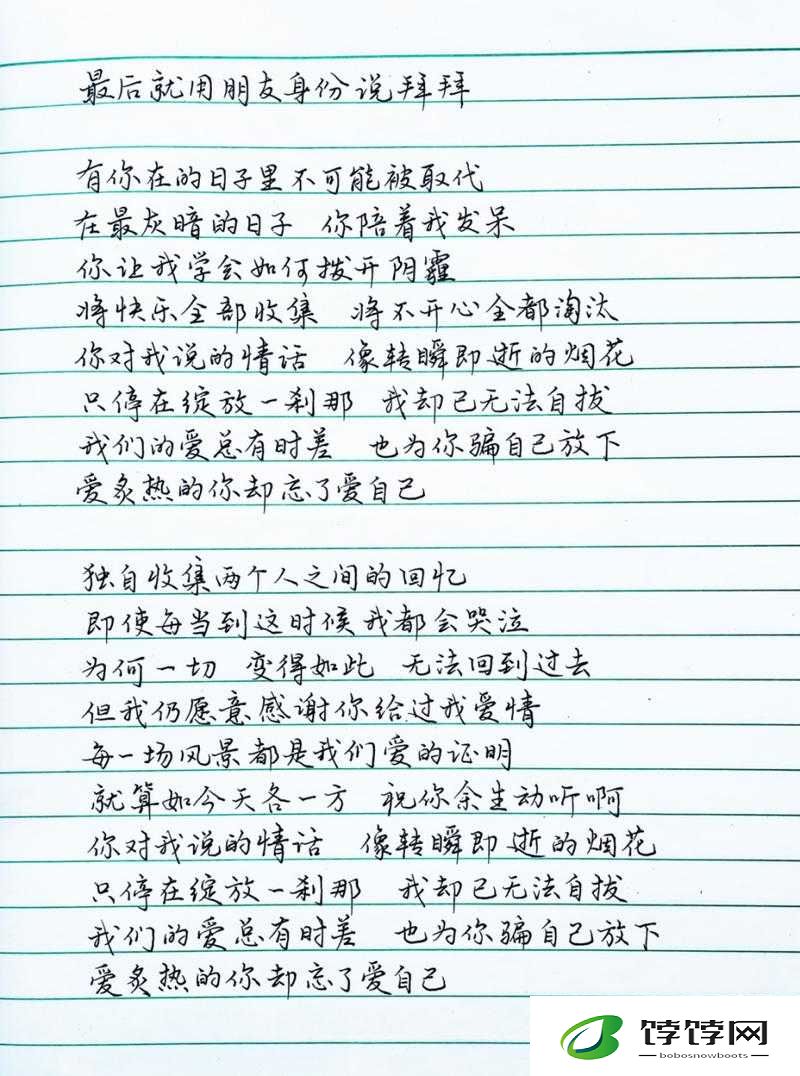 最后就用朋友身份说拜拜
有你在的日子里不可能被取代
在最灰暗的日子 你陪着我发呆
你让我学会如何拨开阴霾
将快乐全部收集 将不开心全都淘汰
你对我说的情话 像转瞬即逝的烟花
只停在绽放一刹那 我却已无法自拔
我们的爱总有时差 也为你骗自己放下
爱炙热的你却忘了爱自己
独自收集两个人之间的回忆
即使每当到这时候我都会哭泣
为何一切 变得如此 无法回到过去
但我仍愿意感谢你给过我爱情
每一场风景都是我们爱的证明
就算如今天各一方 祝你余生动听啊
你对我说的情话 像转瞬即逝的烟花
只停在绽放一刹那 我却已无法自拔
我们的爱总有时差 也为你骗自己放下
爱炙热的你却忘了爱自己
饽饽网
bobosnowboots